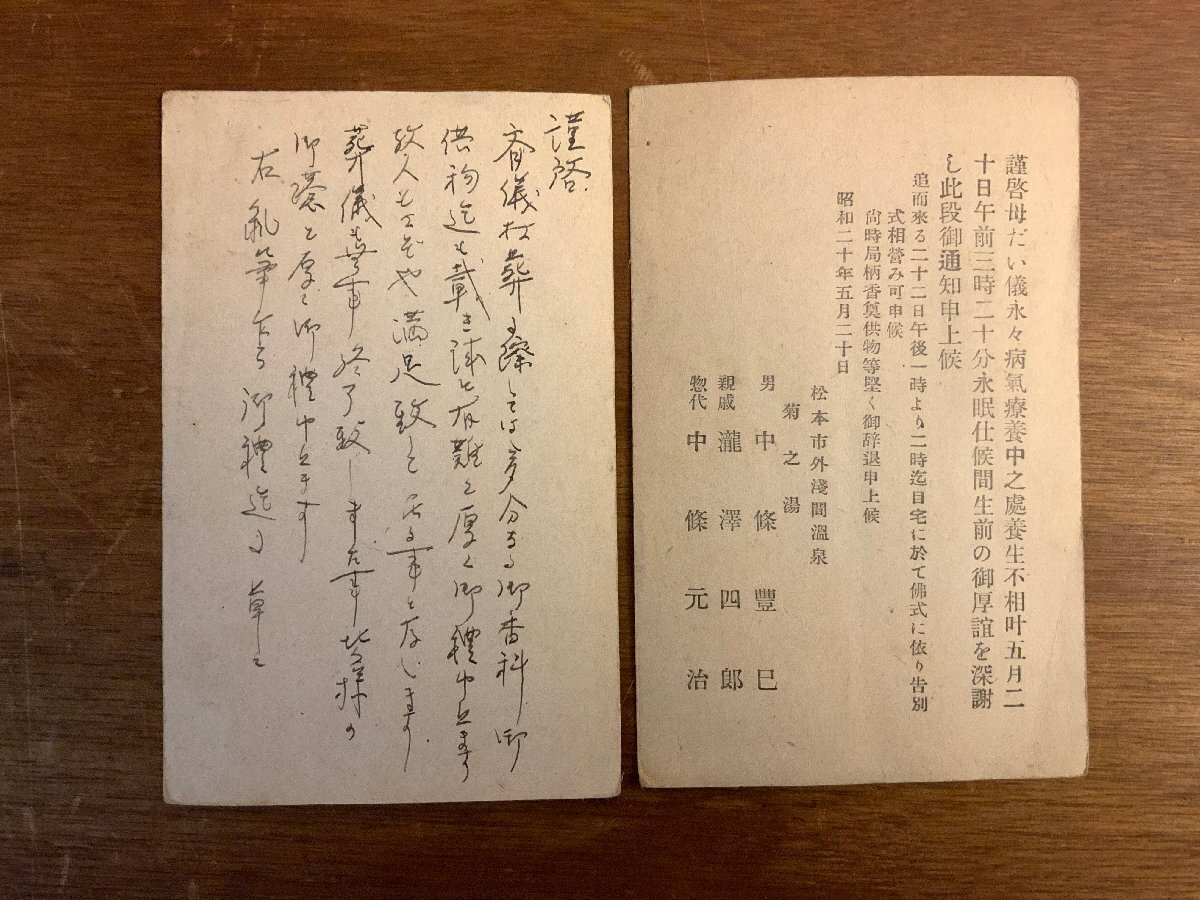 謹啓母だい儀永々病氣療養中之處養生不相叶五月二
十日午前三時二十分永眠仕候間生前の御厚誼を深謝
し此段御通知申上候
追而來る二十二日午後一時より二時迄自宅に於て佛式に依り告別
式相營み可申候
尙時局柄香奠供物等堅く御辞退申上候
昭和二十年五月二十日
松本市外淺間溫泉
菊之湯
男 中條豐巳
親戚 瀧澤四郎
惣代 中條元治
謹啓
葬 際しては多分なる御香料御
供物迄も戴き誠に有難く厚く御禮申上ます
故人もさぞや満足致し 事と存じます
葬儀も 終了致しました 皆様の
御 厚く御禮申上ます
右乱筆ながら御禮迄 草々